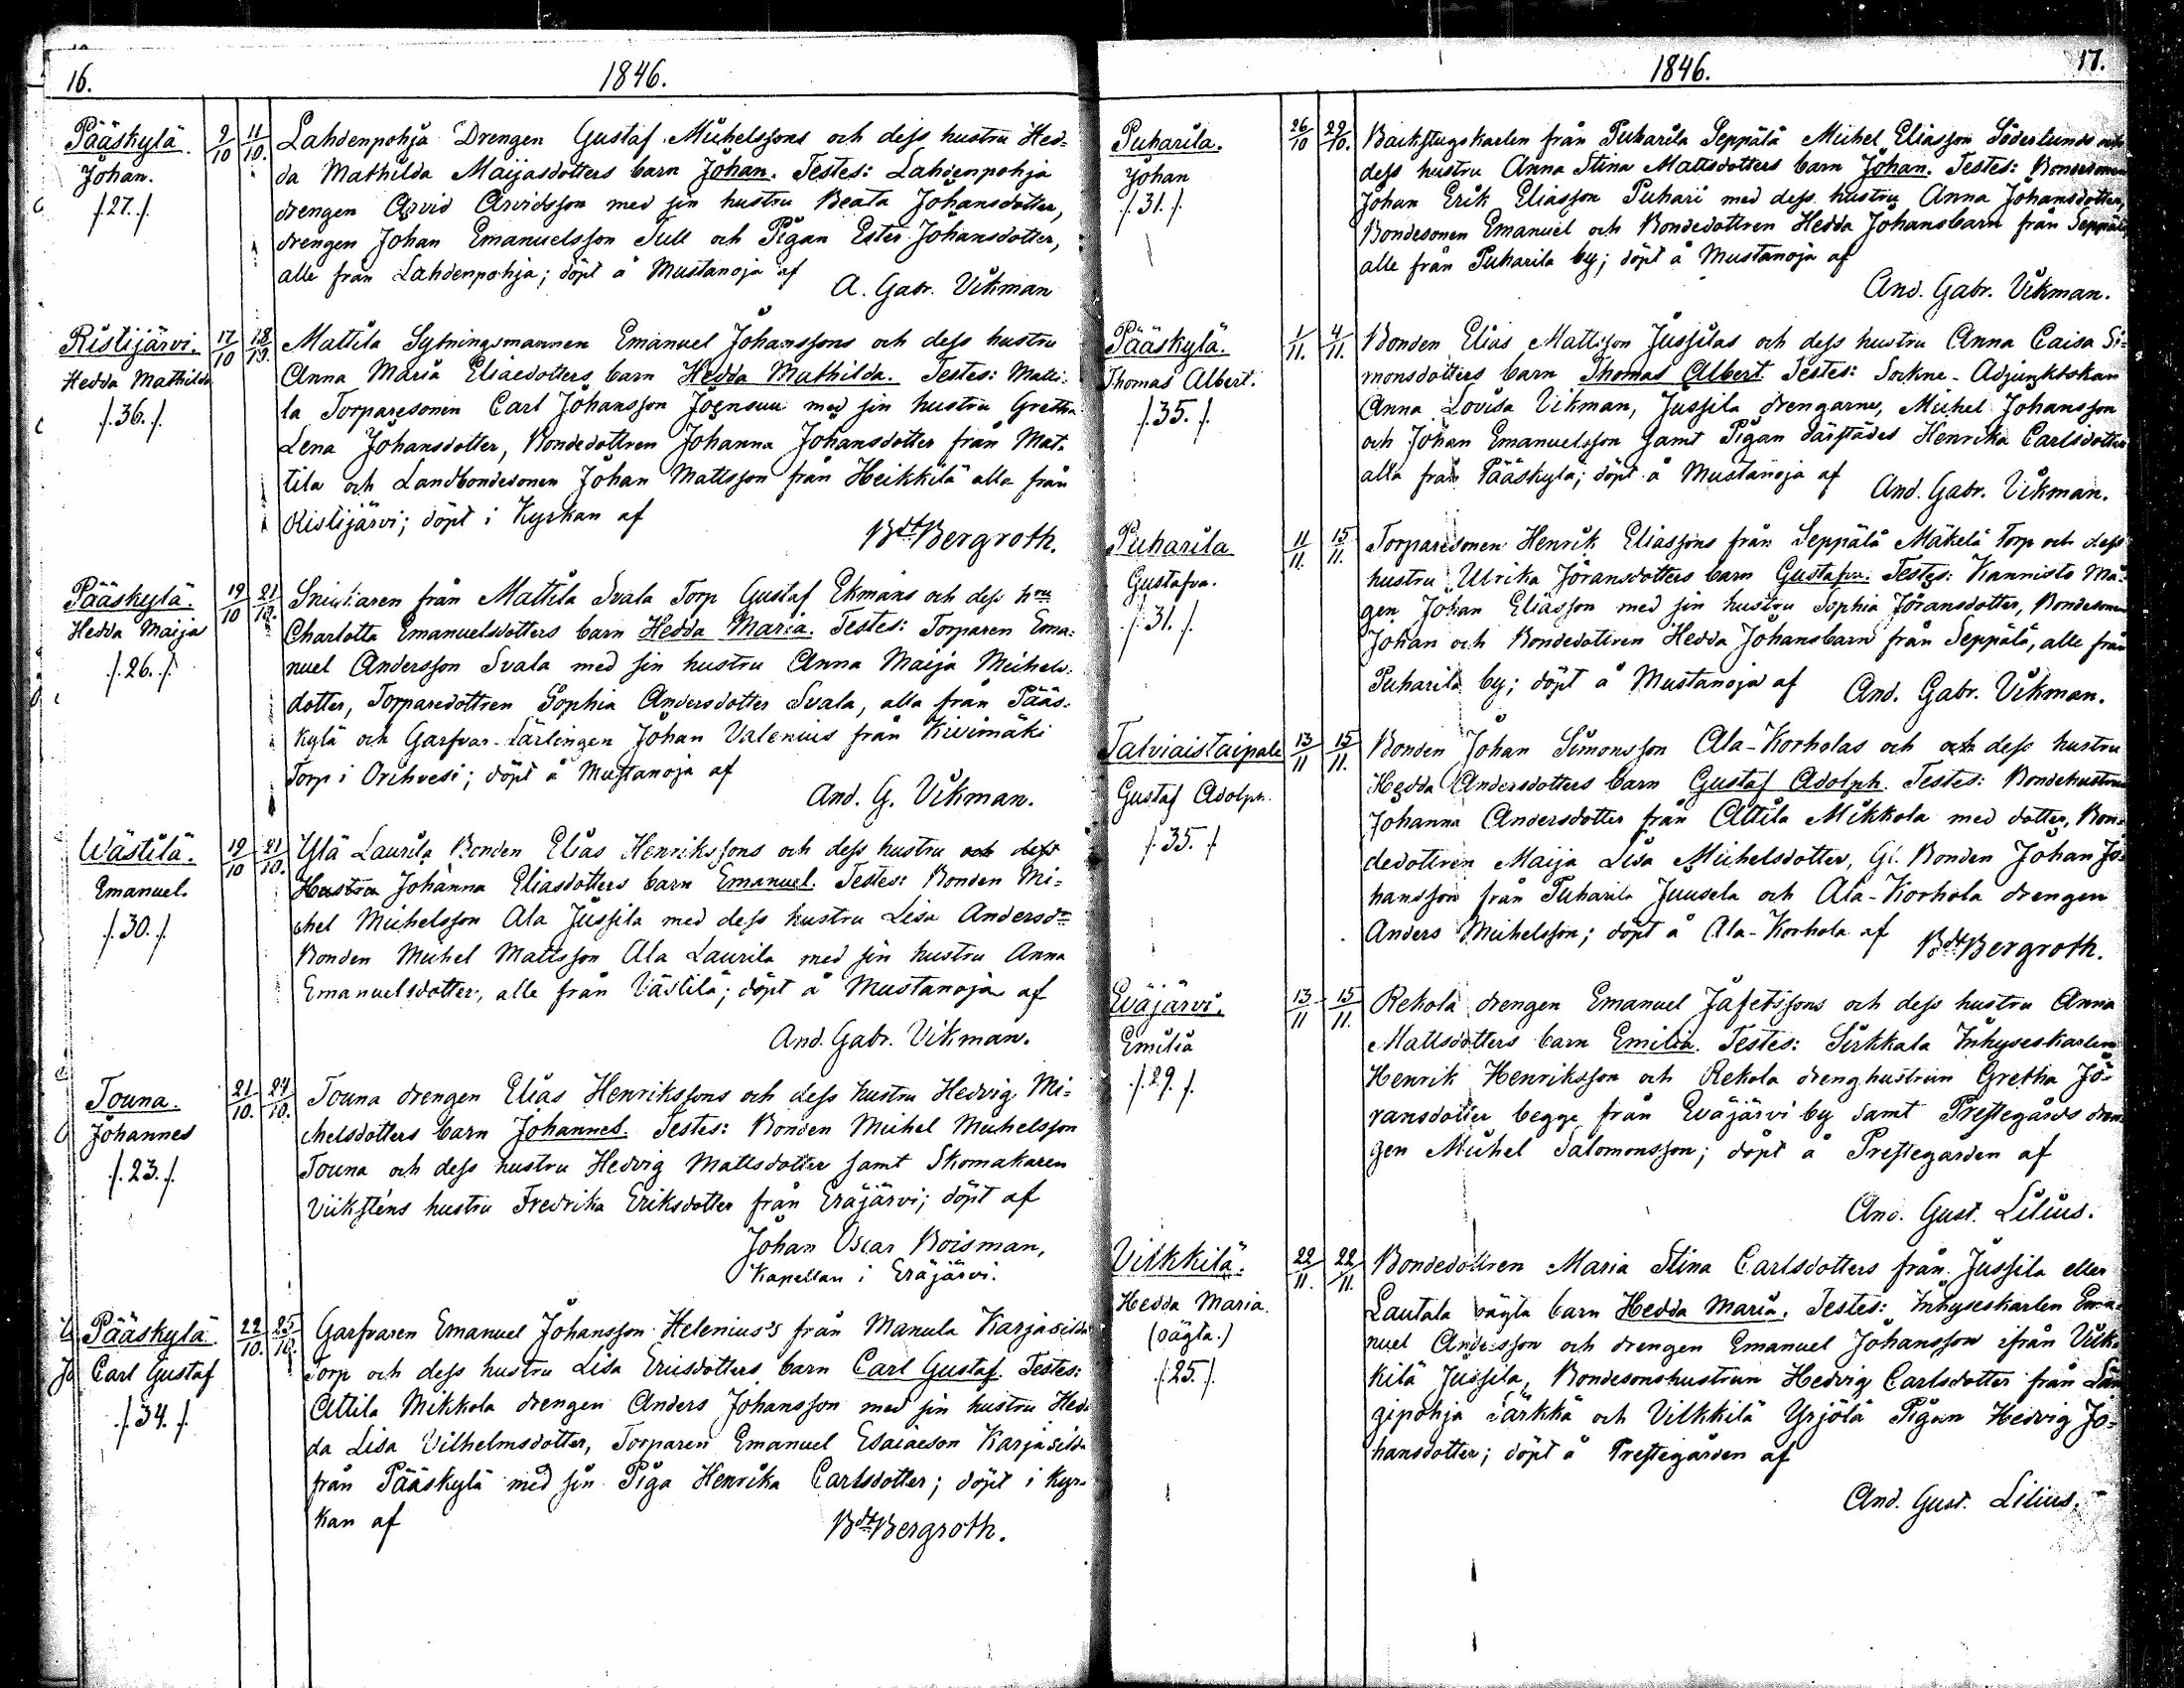 16.
1846.
Pääskylä.
Johan.
/.27./.
9/10 11/10.
Lahdenpohja Drengen Gustaf Michelssons och dess hustru Hed=
da Mathilda Maijasdotters barn Johan. Testes: Lahdenpohja
drengen Arvid Arvidsson med sin hustru Beata Johansdotter,
drengen Johan Emanuelsson Tull och Pigan Ester Johansdotter,
alle från Lahdenpohja; döpt å Mustanoja af
A. Gabr. Vikman
Ristijärvi.
Hedda Mathilda
/.36./.
17/10 18/10.
Mattila Sytningsmannen Emanuel Johanssons och dess hustru
Anna Maria Eliaedotters barn Hedda Mathilda. Testes: Matti=
la Torparesonen Carl Johansson Joensuu med sin hustru Gretha
Lena Johansdotter, Bondedottren Johanna Johansdotter från Mat=
tila och Landbondesonen Johan Mattsson från Heikkilä alla från
Ristijärvi; döpt i Kyrkan af
Bdt Bergroth.
Pääskylä.
Hedda Maija
/.26./.
19/10 21/10.
Snickaren från Mattila Svala Torp Gustaf Ekmans och dess hru
Charlotta Emanuelsdotters barn Hedda Maria. Testes: Torparen Ema=
nuel Andersson Svala med sin hustru Anna Maija Michels=
dotter, Torparedottren Sophia Andersdotter Svala, alla från Pääs=
kylä och Garfvar-Lärlingen Johan Valenius från Kivimäki
Torp i Orihvesi; döpt å Mustanoja af
And. G. Vikman.
Wästilä.
Emanuel.
/.30./.
19/10 21/10.
Ylä Laurila Bonden Elias Henrikssons och dess hustru och dess
Hustru Johanna Eliasdotters barn Emanuel. Testes: Bonden Mi=
chel Michelsson Ala Jussila med dess hustru Lisa Andersdr
Bonden Michel Mattsson Ala Laurila med sin hustru Anna
Emanuelsdotter, alle från Västilä; döpt å Mustanoja af
And. Gabr. Vikman.
Touna.
Johannes
/.23./.
21/10. 24/10.
Touna drengen Elias Henrikssons och dess hustru Hedvig Mi=
chelsdotters barn Johannes. Testes: Bonden Michel Michelsson
Touna och dess hustru Hedvig Mattsdotter samt Skomakaren
Viiksténs hustru Fredrika Eriksdotter från Eräjärvi; döpt af
Johan Oscar Roisman,
Kapellan i Eräjärvi.
Pääskylä
Carl Gustaf
/.34./.
22/10. 25/10.
Garfvaren Emanuel Johansson Helenius's från Manula Karjasilda
Torp och dess hustru Lisa Ericsdotters barn Carl Gustaf. Testes:
Attila Mikkola drengen Anders Johansson med sin hustru Hed=
da Lisa Vilhelmsdotter, Torparen Emanuel Esaiaeson Karjasilda
från Pääskylä med sin Piga Henrika Carlsdotter; döpt i Kyr=
kan af
Bdt Bergroth.
1846.
17.
Puharila.
Johan
/.31./.
26/10 29/10.
Backstugskarlen från Puharila Seppälä Michel Eliasson Söderlunds och
dess hustru Anna Stina Mattsdotters barn Johan. Testes: Bondesonen
Johan Erik Eliasson Puhari med dess hustru Anna Johansdotter,
Bondesonen Emanuel och Bondedottren Hedda Johansbarn från Seppälä
alle från Puharila by; döpt å Mustanoja af
And. Gabr. Vikman.
Pääskylä.
Thomas Albert.
/.35./.
1/11. 4/11.
Bonden Elias Mattsson Jussilas och dess hustru Anna Caisa Si=
monsdotters barn Thomas Albert. Testes: Sockne-Adjunktskan
Anna Lovisa Vikman, Jussila drengarne, Michel Johansson
och Johan Emanuelsson samt Pigan därstädes Henrika Carlsdotter
alla från Pääskylä; döpt å Mustanoja af
And. Gabr. Vikman.
Puharila
Gustafva.
/.31./.
11/11. 15/11.
Torparesonen Henrik Eliassons från Seppälä Mäkelä Torp och dess
hustru Ulrika Jöransdotters barn Gustafva. Testes: Kannisto Må=
gen Johan Eliasson med sin hustru Sophia Jöransdotter, Bondesonen
Johan och Bondedottren Hedda Johansbarn från Seppälä, alle från
Puharila by; döpt å Mustanoja af
And. Gabr. Vikman.
Talviaistaipale
Gustaf Adolph.
/.35./.
13/11 15/11.
Bonden Johan Simonsson Ala-Korholas och och dess hustru
Hedda Andersdotters barn Gustaf Adolph. Testes: Bondehustrun
Johanna Andersdotter från Attila Mikkola med dotter, Bon=
dedottren Maija Lisa Michelsdotter, Gl. Bonden Johan Jo=
hansson från Puharila Juusela och Ala-Korhola drengen
Anders Michelsson; döpt å Ala-Korhola af
Bdt Bergroth.
Eväjärvi.
Emilia
/.29./.
13/11 15/11.
Rekola drengen Emanuel Jafetssons och dess hustru Anna
Mattsdotters barn Emilia. Testes: Sirkkala Inhyseskarlen
Henrik Henriksson och Rekola drenghustrun Gretha Jö=
ransdotter begge från Eväjärvi by samt Prestegårds dren=
gen Michel Salomonsson; döpt å Prestegården af
And. Gust. Lilius.
Vilkkilä.
Hedda Maria.
(oägta.)
/.25./.
22/11. 22/11.
Bondedottren Maria Stina Carlsdotters från Jussila eller
Lautala oägta barn Hedda Maria. Testes: Inhyseskarlen Ema=
nuel Andersson och drengen Emanuel Johansson ifrån Vilk=
kilä Jussila, Bondesonshustrun Hedvig Carlsdotter från Län
gipohja Särkkä och Vilkkilä Yrjölä Pigan Hedvig Jo=
hansdotter; döpt å Prestegården af
And. Gust. Lilius.